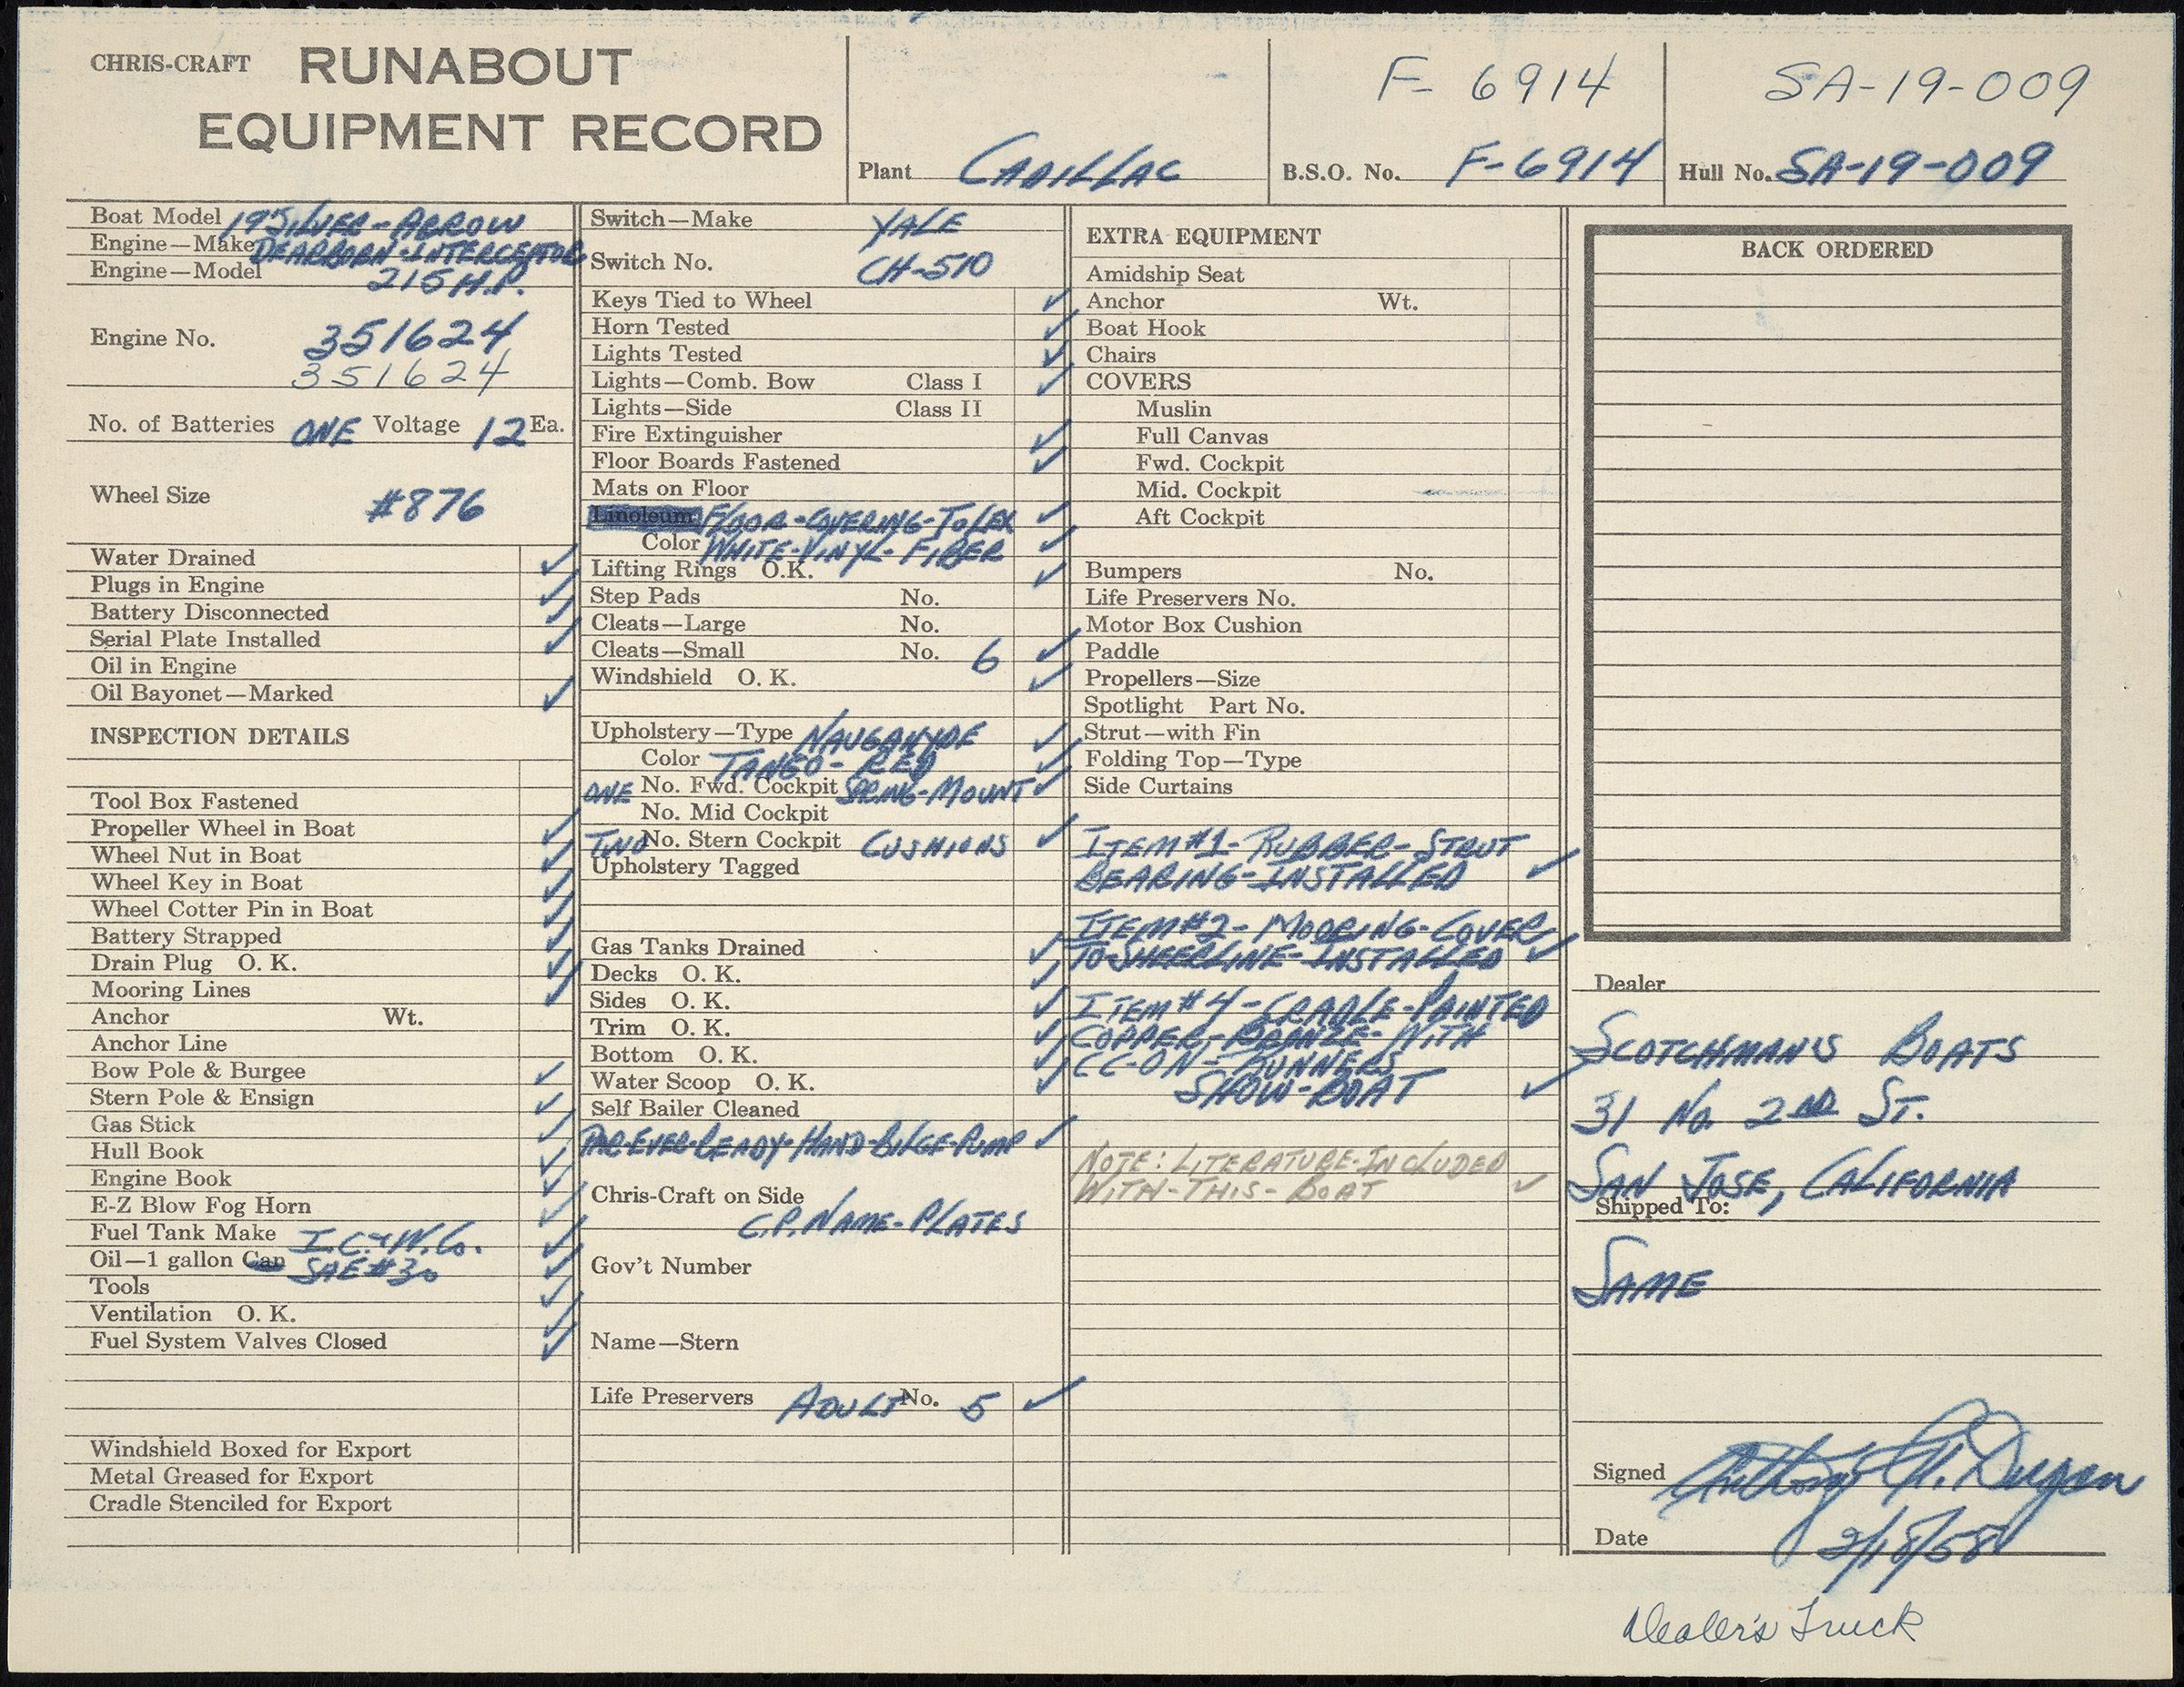 CHRIS-CRAFT RUNABOUT
EQUIPMENT RECORD
Plant CADILLAC
F-6914
B.S.O. No. F-6914
SA-19-009
Hull No. SA-19-009
Boat Model 19 SILVER-ARROW
Engine—Make DEARBORN-INTERCEPTOR
Engine—Model 215 H.P.
Engine No. 351624
351624
No. of Batteries ONE Voltage 12 Ea.
Wheel Size #876
Water Drained ✓
Plugs in Engine ✓
Battery Disconnected ✓
Serial Plate Installed ✓
Oil in Engine
Oil Bayonet—Marked ✓
INSPECTION DETAILS
Tool Box Fastened
Propeller Wheel in Boat ✓
Wheel Nut in Boat ✓
Wheel Key in Boat ✓
Wheel Cotter Pin in Boat ✓
Battery Strapped ✓
Drain Plug O. K. ✓
Mooring Lines ✓
Anchor Wt.
Anchor Line
Bow Pole & Burgee ✓
Stern Pole & Ensign ✓
Gas Stick ✓
Hull Book ✓
Engine Book ✓
E-Z Blow Fog Horn ✓
Fuel Tank Make I.C.+W.Co. ✓
Oil—1 gallon Can SAE #30 ✓
Tools ✓
Ventilation O. K. ✓
Fuel System Valves Closed ✓
Windshield Boxed for Export
Metal Greased for Export
Cradle Stenciled for Export
Switch—Make YALE
Switch No. CH-510
Keys Tied to Wheel ✓
Horn Tested ✓
Lights Tested ✓
Lights—Comb. Bow Class I ✓
Lights—Side Class II
Fire Extinguisher ✓
Floor Boards Fastened ✓
Mats on Floor
Linoleum FLOOR-COVERING-TOLEX ✓
Color WHITE-VINYL-FIBER ✓
Lifting Rings O.K. ✓
Step Pads No.
Cleats—Large No.
Cleats—Small No. 6 ✓
Windshield O. K. ✓
Upholstery—Type NAUGAHYDE ✓
Color TANGO-RED ✓
ONE No. Fwd. Cockpit SPRING-MOUNT ✓
No. Mid Cockpit
TWO No. Stern Cockpit CUSHIONS ✓
Upholstery Tagged
Gas Tanks Drained ✓
Decks O. K. ✓
Sides O. K. ✓
Trim O. K. ✓
Bottom O. K. ✓
Water Scoop O. K. ✓
Self Bailer Cleaned
PAR-EVER-READY-HAND-BILGE-PUMP ✓
Chris-Craft on Side
C.P. NAME-PLATES
Gov't Number
Name—Stern
Life Preservers ADULT No. 5 ✓
EXTRA EQUIPMENT
Amidship Seat
Anchor Wt.
Boat Hook
Chairs
COVERS
Muslin
Full Canvas
Fwd. Cockpit
Mid. Cockpit
Aft Cockpit
Bumpers No.
Life Preservers No.
Motor Box Cushion
Paddle
Propellers—Size
Spotlight Part No.
Strut—with Fin
Folding Top—Type
Side Curtains
ITEM #1-RUBBER-STRUT
BEARING-INSTALLED ✓
ITEM #2-MOORING-COVER
TO-SHEERLINE-INSTALLED ✓
ITEM #4-CRADLE-PAINTED
COPPER-BRONZE-WITH
CC-ON-RUNNERS
SHOW-BOAT ✓
NOTE: LITERATURE-INCLUDED
WITH-THIS-BOAT ✓
BACK ORDERED
Dealer
SCOTCHMAN'S BOATS
31 No. 2ND ST.
SAN JOSE, CALIFORNIA
Shipped To:
SAME
Signed Anthony A. Dugan
Date 2/18/58
Dealer's Truck